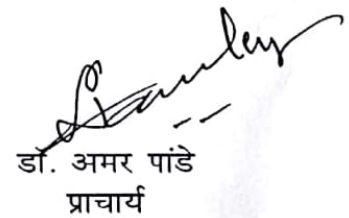 डॉ. अमर पांडे
प्राचार्य